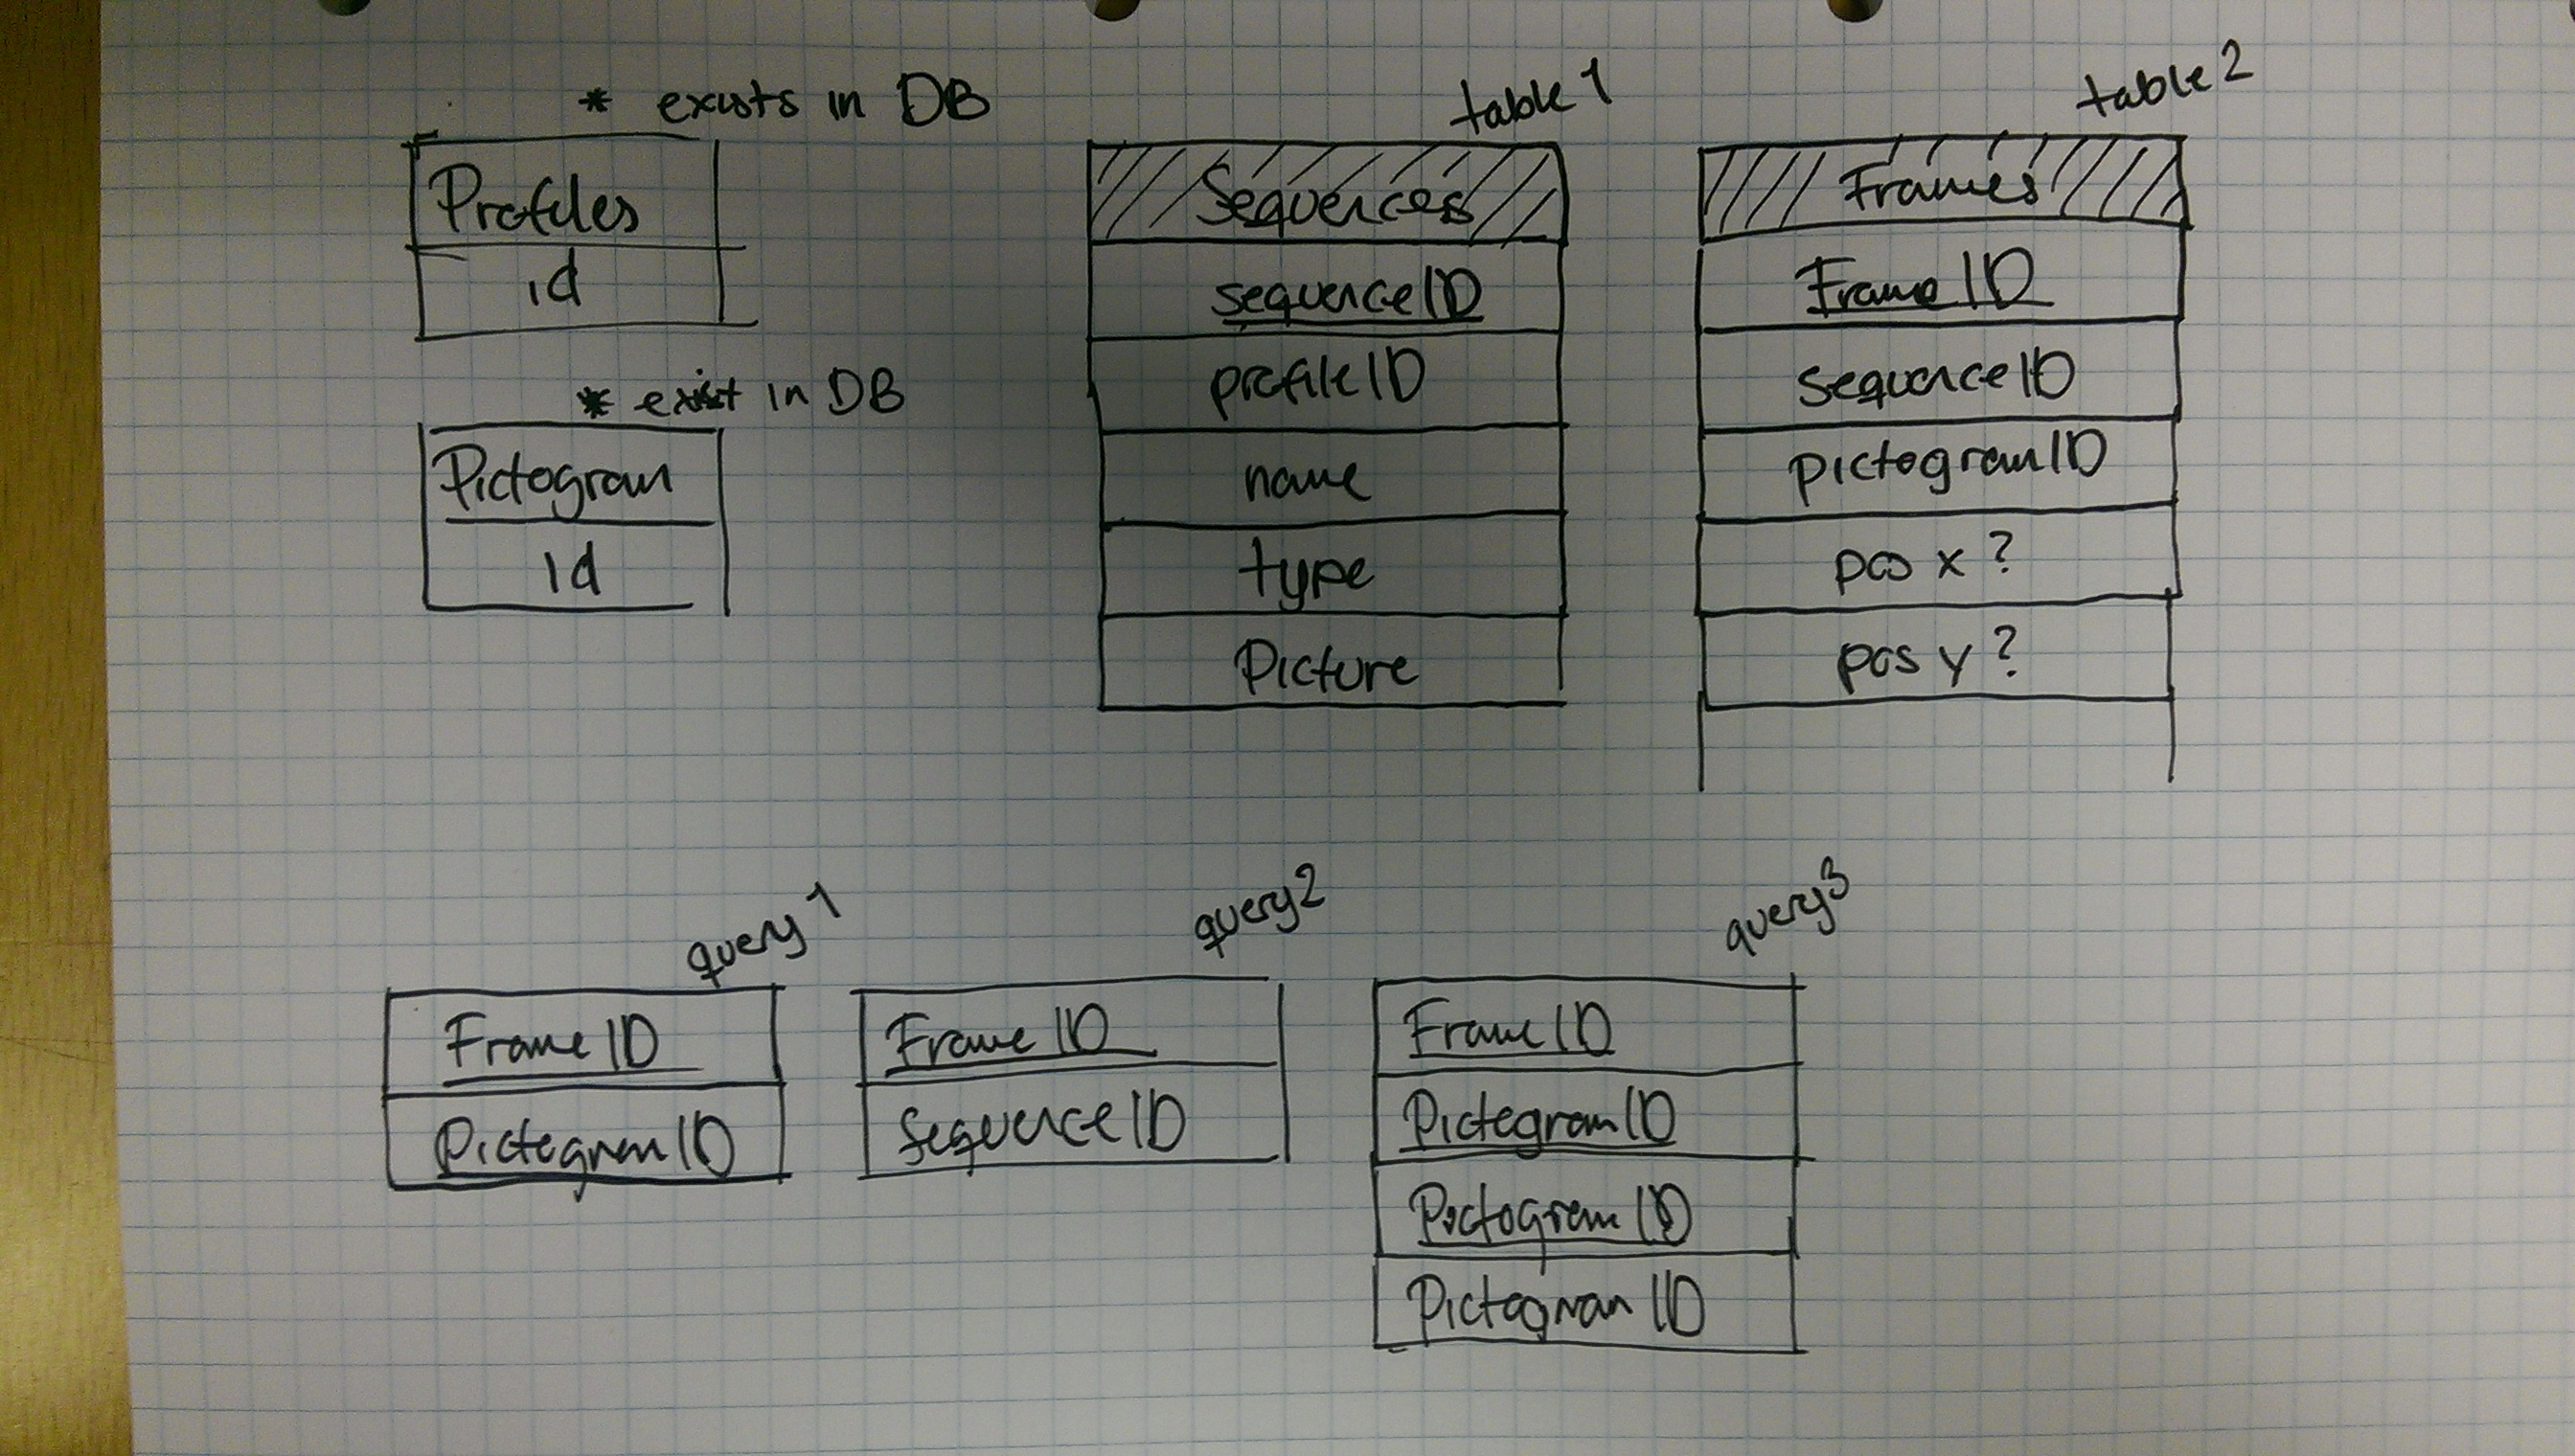 * exists in DB
Profiles
id
* exist in DB
Pictogram
id
table 1
Sequences
sequenceID
profileID
name
type
Picture
table 2
Frames
Frame ID
sequenceID
pictogramID
pos x ?
pos y ?
query 1
Frame ID
PictegramID
query2
Frame ID
SequenceID
query3
FrameID
PictegramID
Pictogram ID
Pictogram ID